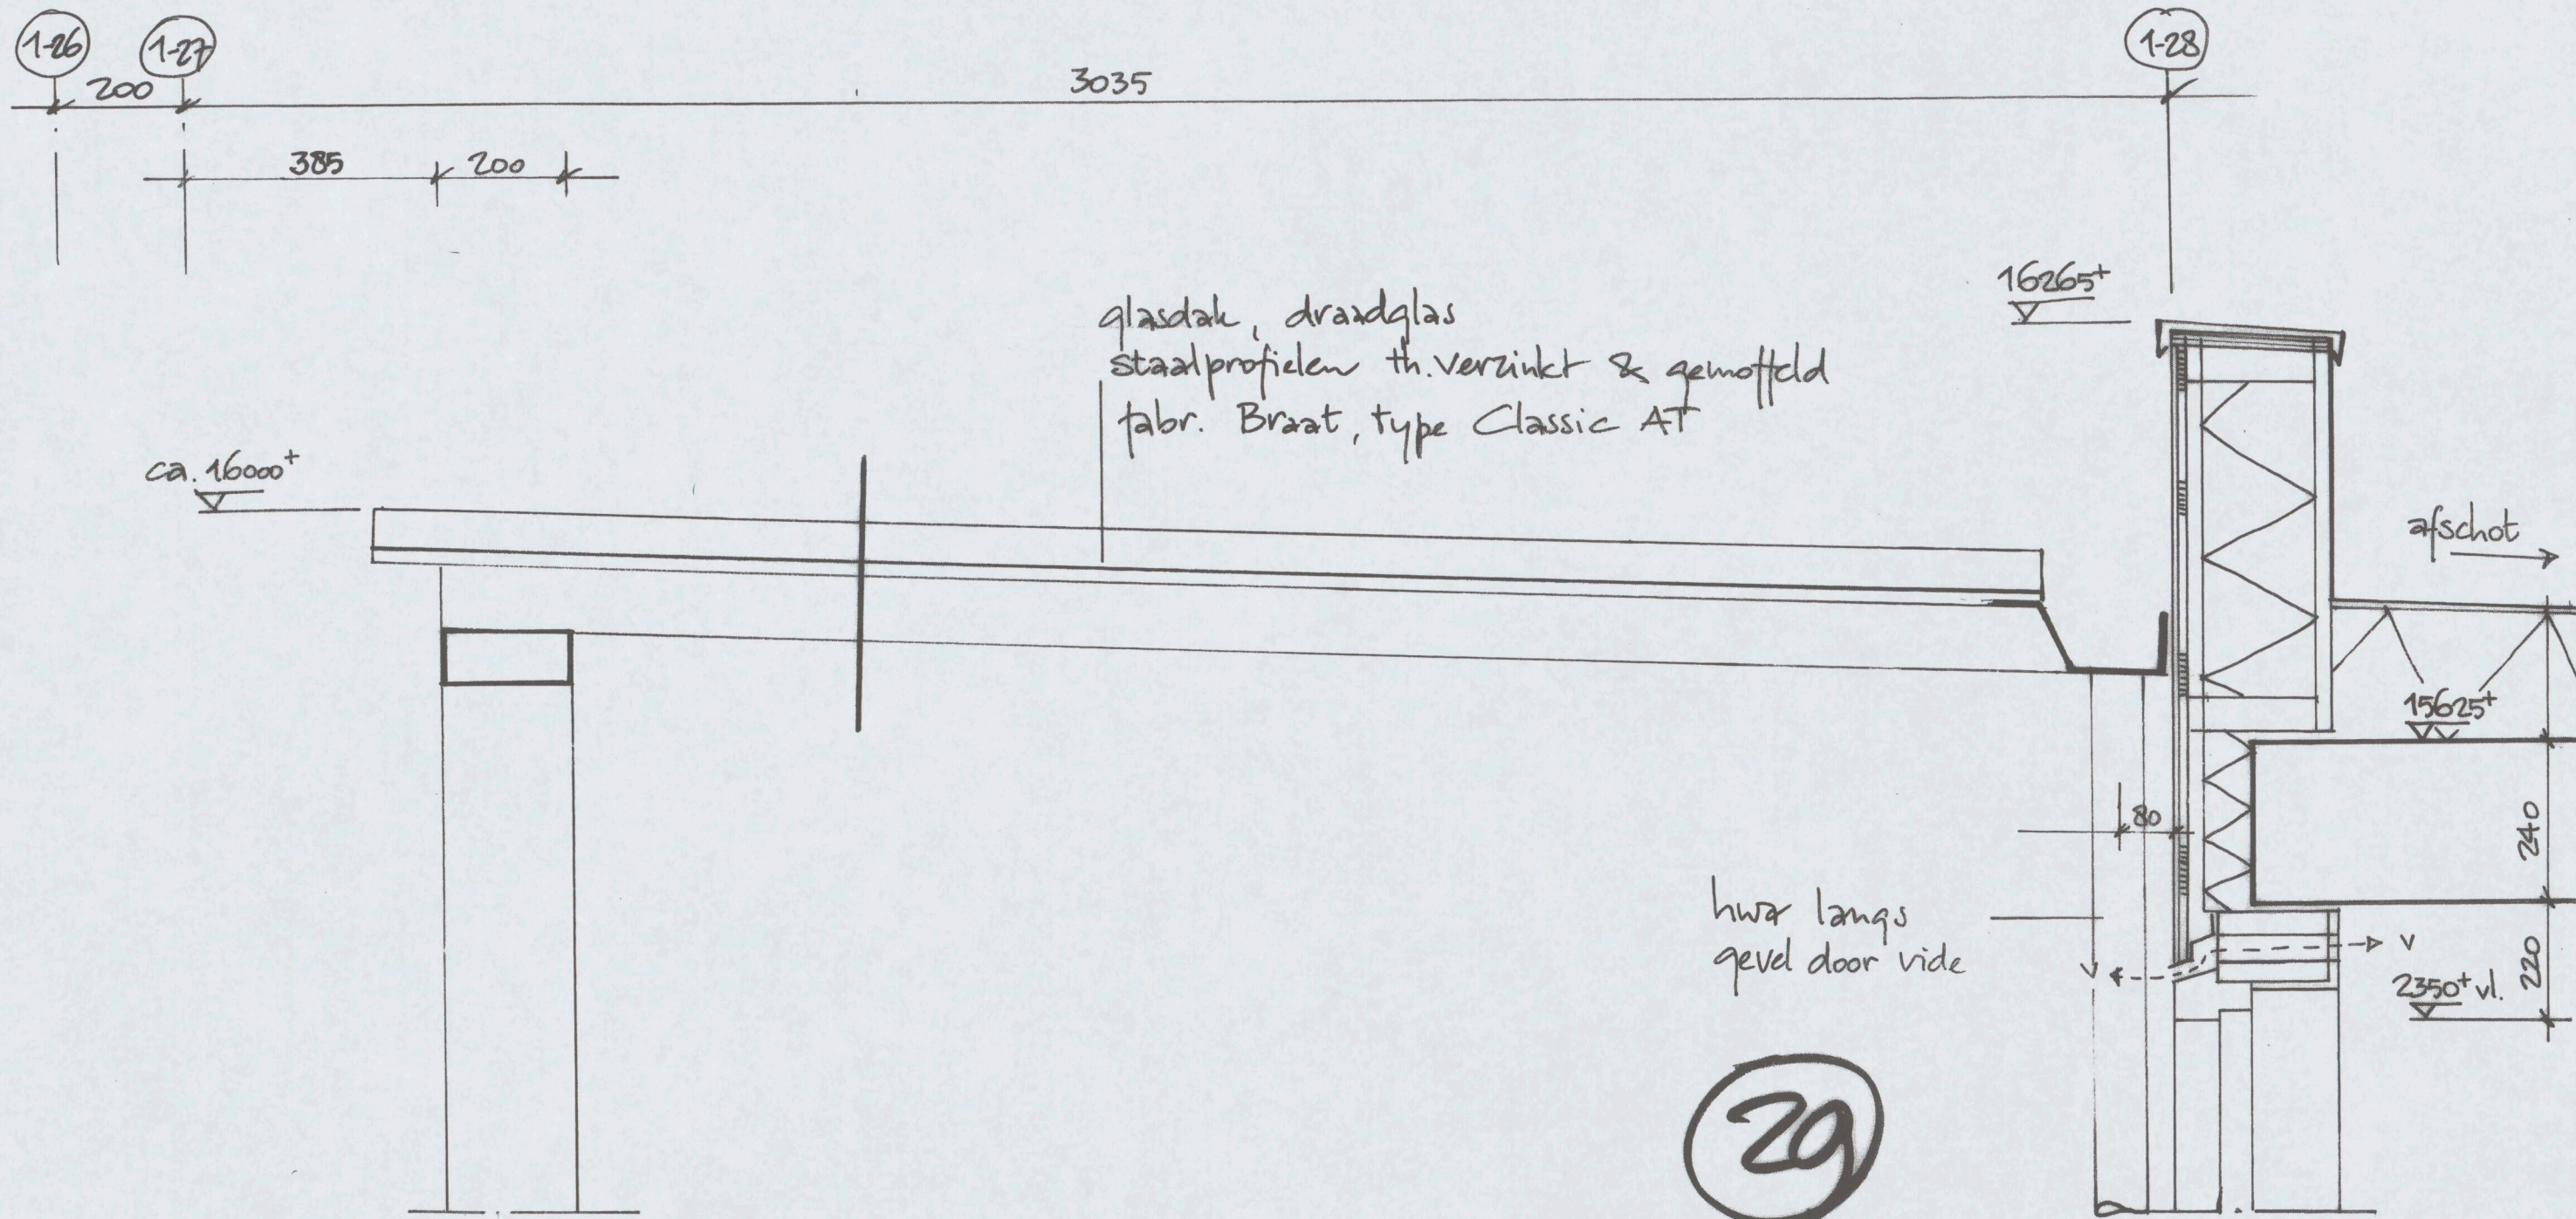 1-26
1-27
1-28
200
3035
385
200
16265+
glasdak, draadglas
staalprofielen th. verzinkt & gemoffeld
fabr. Braat, type Classic AT
ca. 16000+
afschot
15625+
80
240
hwa langs
gevel door vide
v
v
220
2350+ vl.
29